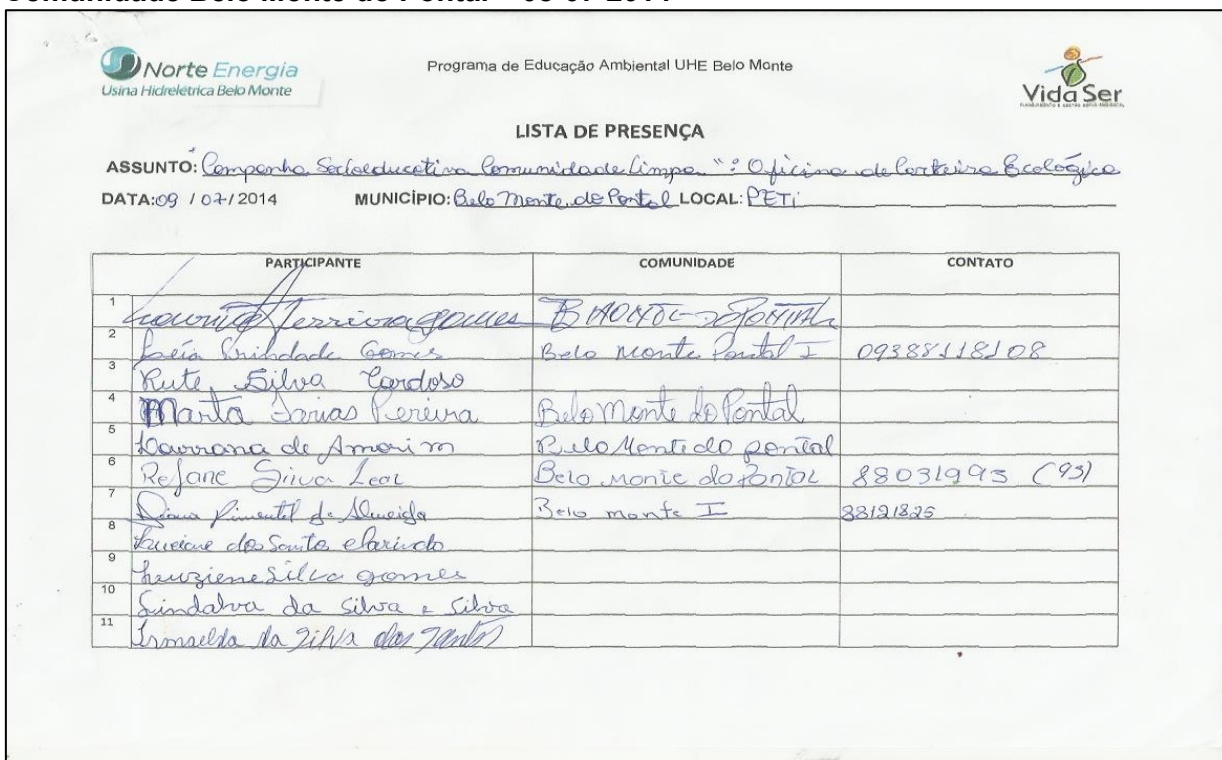 Norte Energia
Usina Hidrelétrica Belo Monte
Programa de Educação Ambiental UHE Belo Monte
Vida Ser
LISTA DE PRESENÇA
ASSUNTO: Campanha Socioeducativa "Comunidade Limpa": Oficina de Carteira Ecológica
DATA: 09 / 07 / 2014 MUNICÍPIO: Belo Monte do Pontal LOCAL: PETI
PARTICIPANTE COMUNIDADE CONTATO
1 Ferreira gomes
2 Trindade Gomes Belo Monte Pontal I 09388118108
3 Rute Silva Cardoso
4 Marta Farias Pereira Belo Monte do Pontal
5 de Amorim Belo Monte do pontal
6 Rejane Silva Leal Belo monte do pontal 88031993 (93)
7 Pimentel de Almeida Belo monte I 88121825
8 dos Santos
9 Silva gomes
10 Lindalva da Silva e Silva
11 da Silva dos Santos